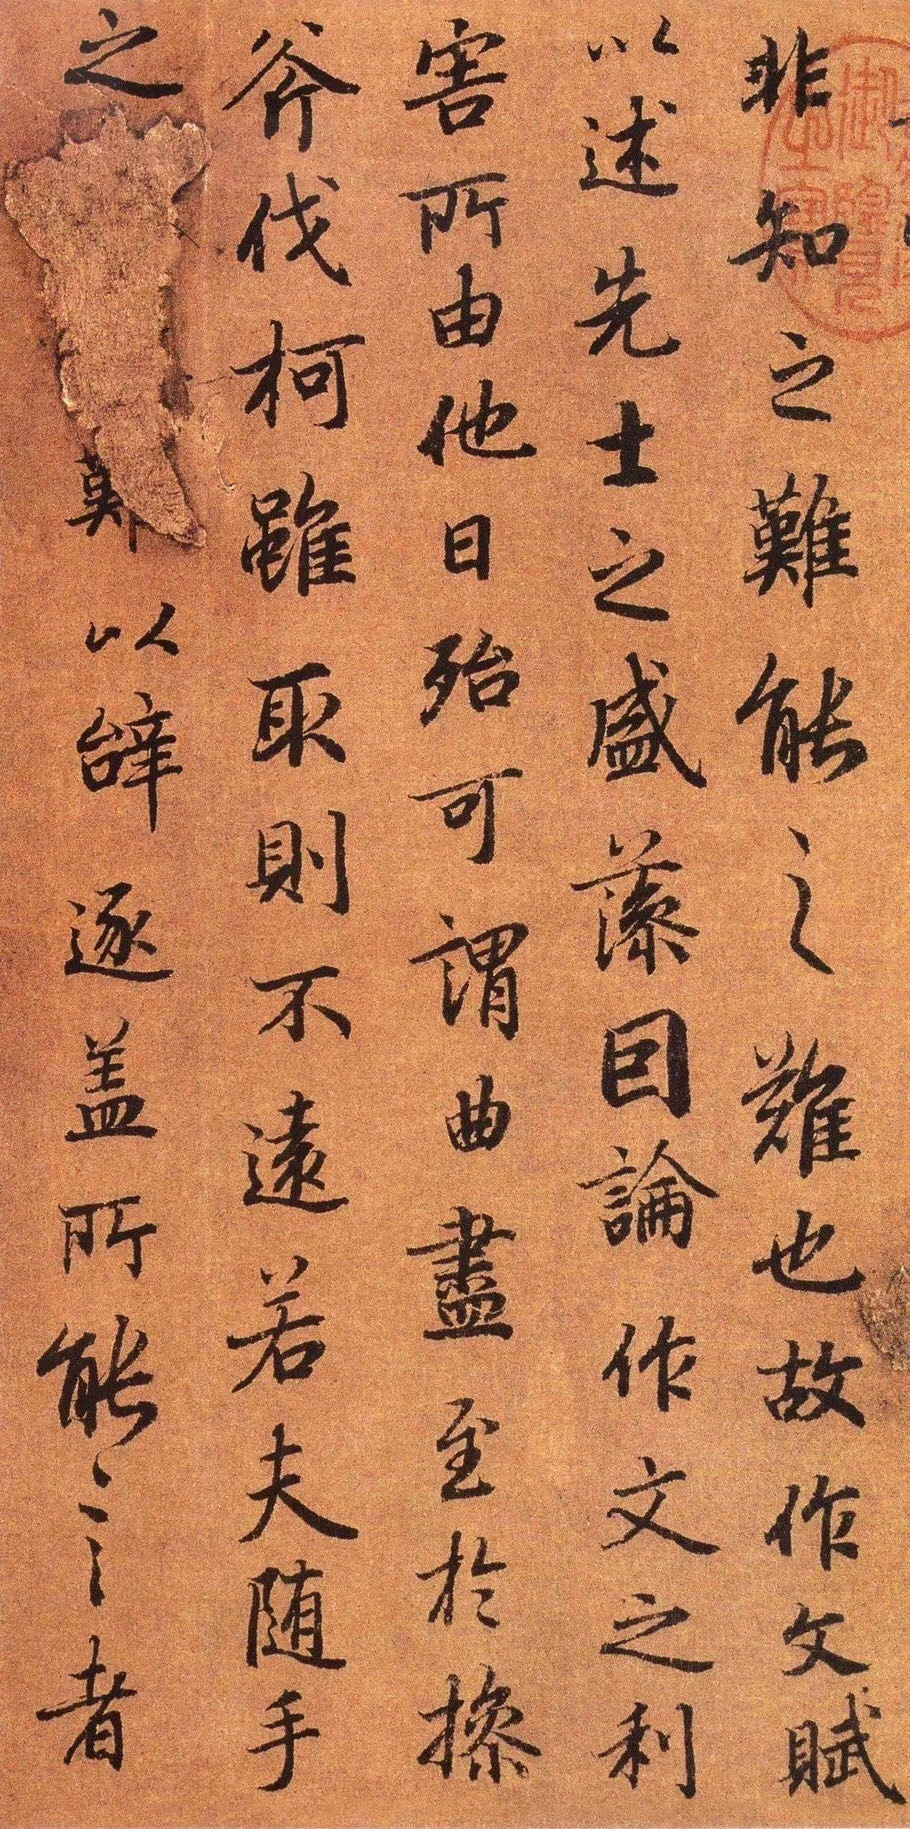 非知之難能之難也故作文賦
以述先士之盛藻因論作文之利
害所由他日殆可謂曲盡至於操
斧伐柯雖取則不遠若夫随手
之 難以辭逐盖所能之者